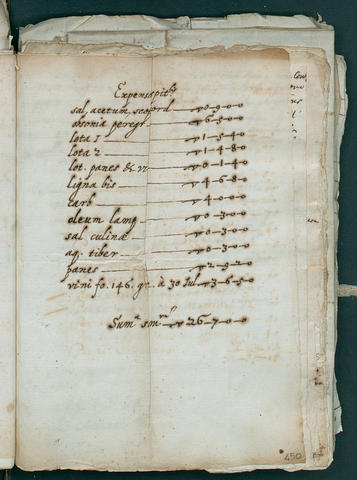 Expensa pith.
sal, acetum, scoford — 0-90-0
obsonia peregr. — 6-50-0
lota 1 — 1-5-40
lota 2 — 1-4-80
lot. panes &c. — 0-1-40
ligna bis — 4-6-80
carb — 4-00-0
oleum lamp — 0-30-0
sal culinæ — 0-30-0
aq. tiber — 0-30-0
panes — 2-9-20
vini fo. 146. gr. à 30 Iul — 3-6-50
Sum.ᵃ sm — 26-70-0
450